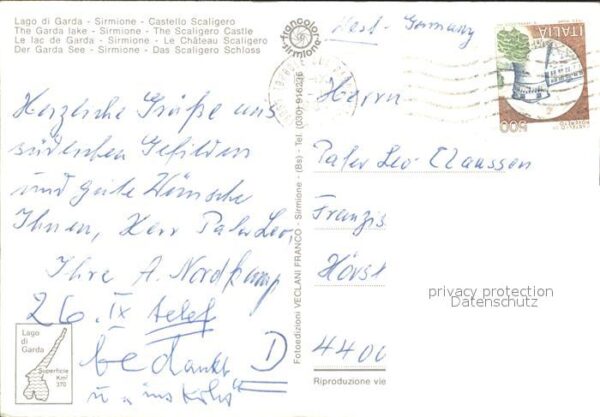 Lago di Garda - Sirmione - Castello Scaligero
The Garda lake - Sirmione - The Scaligero Castle
Le lac de Garda - Sirmione - Le Château Scaligero
Der Garda See - Sirmione - Das Scaligero Schloss
Herzliche Grüße aus
südlichen Gefilden
und gute Wünsche
Ihnen, Herr Pater Leo,
Ihre A. Nordkamp
26. IX telef
bedankt
Lago
di
Garda
Superficie
Km²
370
francolor
sirmione
Fotoedizioni VECLANI FRANCO - Sirmione - (Bs) - Tel. (030) 916226
West Germany
ITALIA
500
Herrn
Pater Leo Claussen
Franzis
Hörst
privacy protection
Datenschutz
440
Riproduzione vie